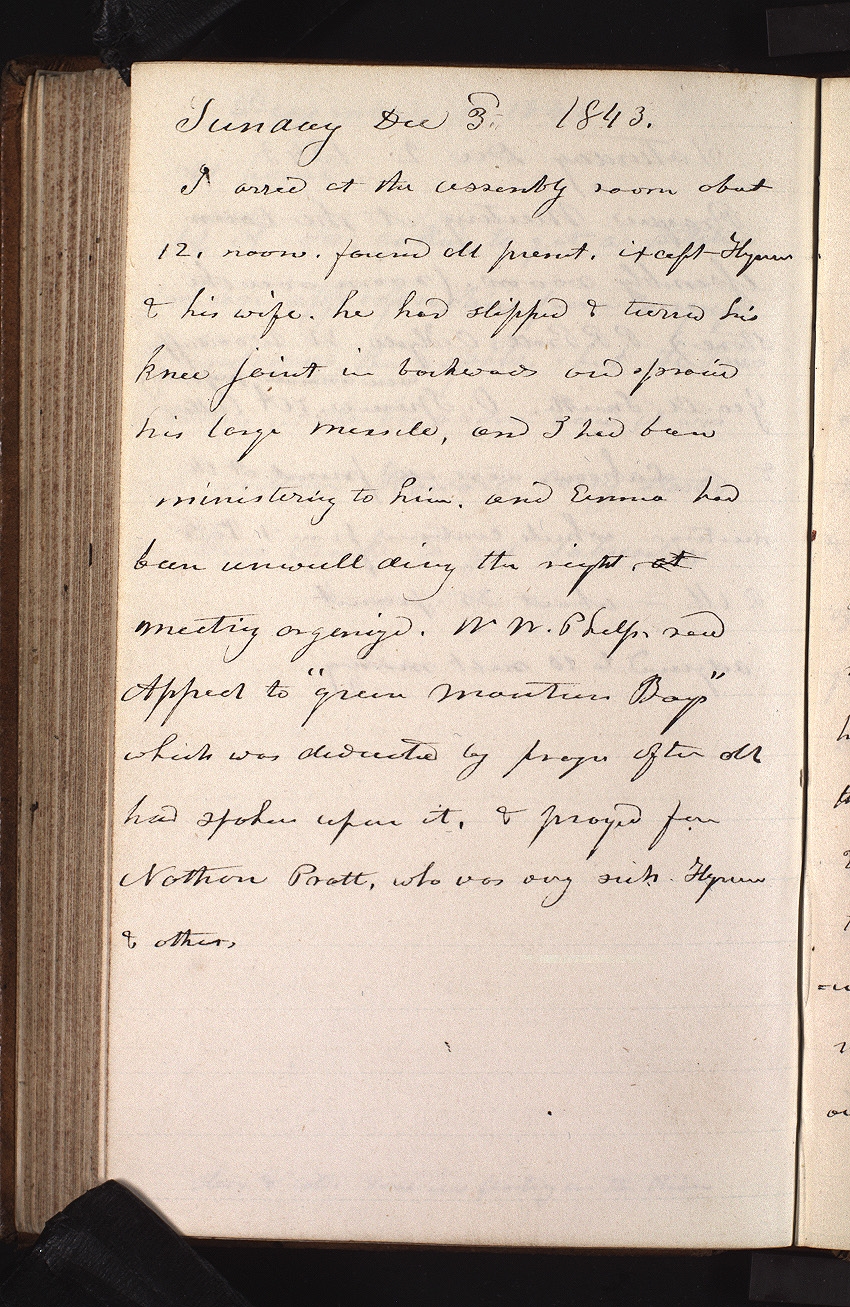 Sunday Dec 3. 1843.
I arred at the assembly room about
12. noon. found all present. except Hyrum
& his wife. he had slipped & turnd his
knee joint in backwads and spraind
his large mussle, and I had been
ministering to him. and Emma had
been unwell ding the night. at
meeting organizd. W W. Phelps. read
Appeal to "green Mountain Boys"
which was dedicated by prayer after all
had spoken upon it. & prayed for
Nathan Pratt. who was very sick. Hyrum
& others